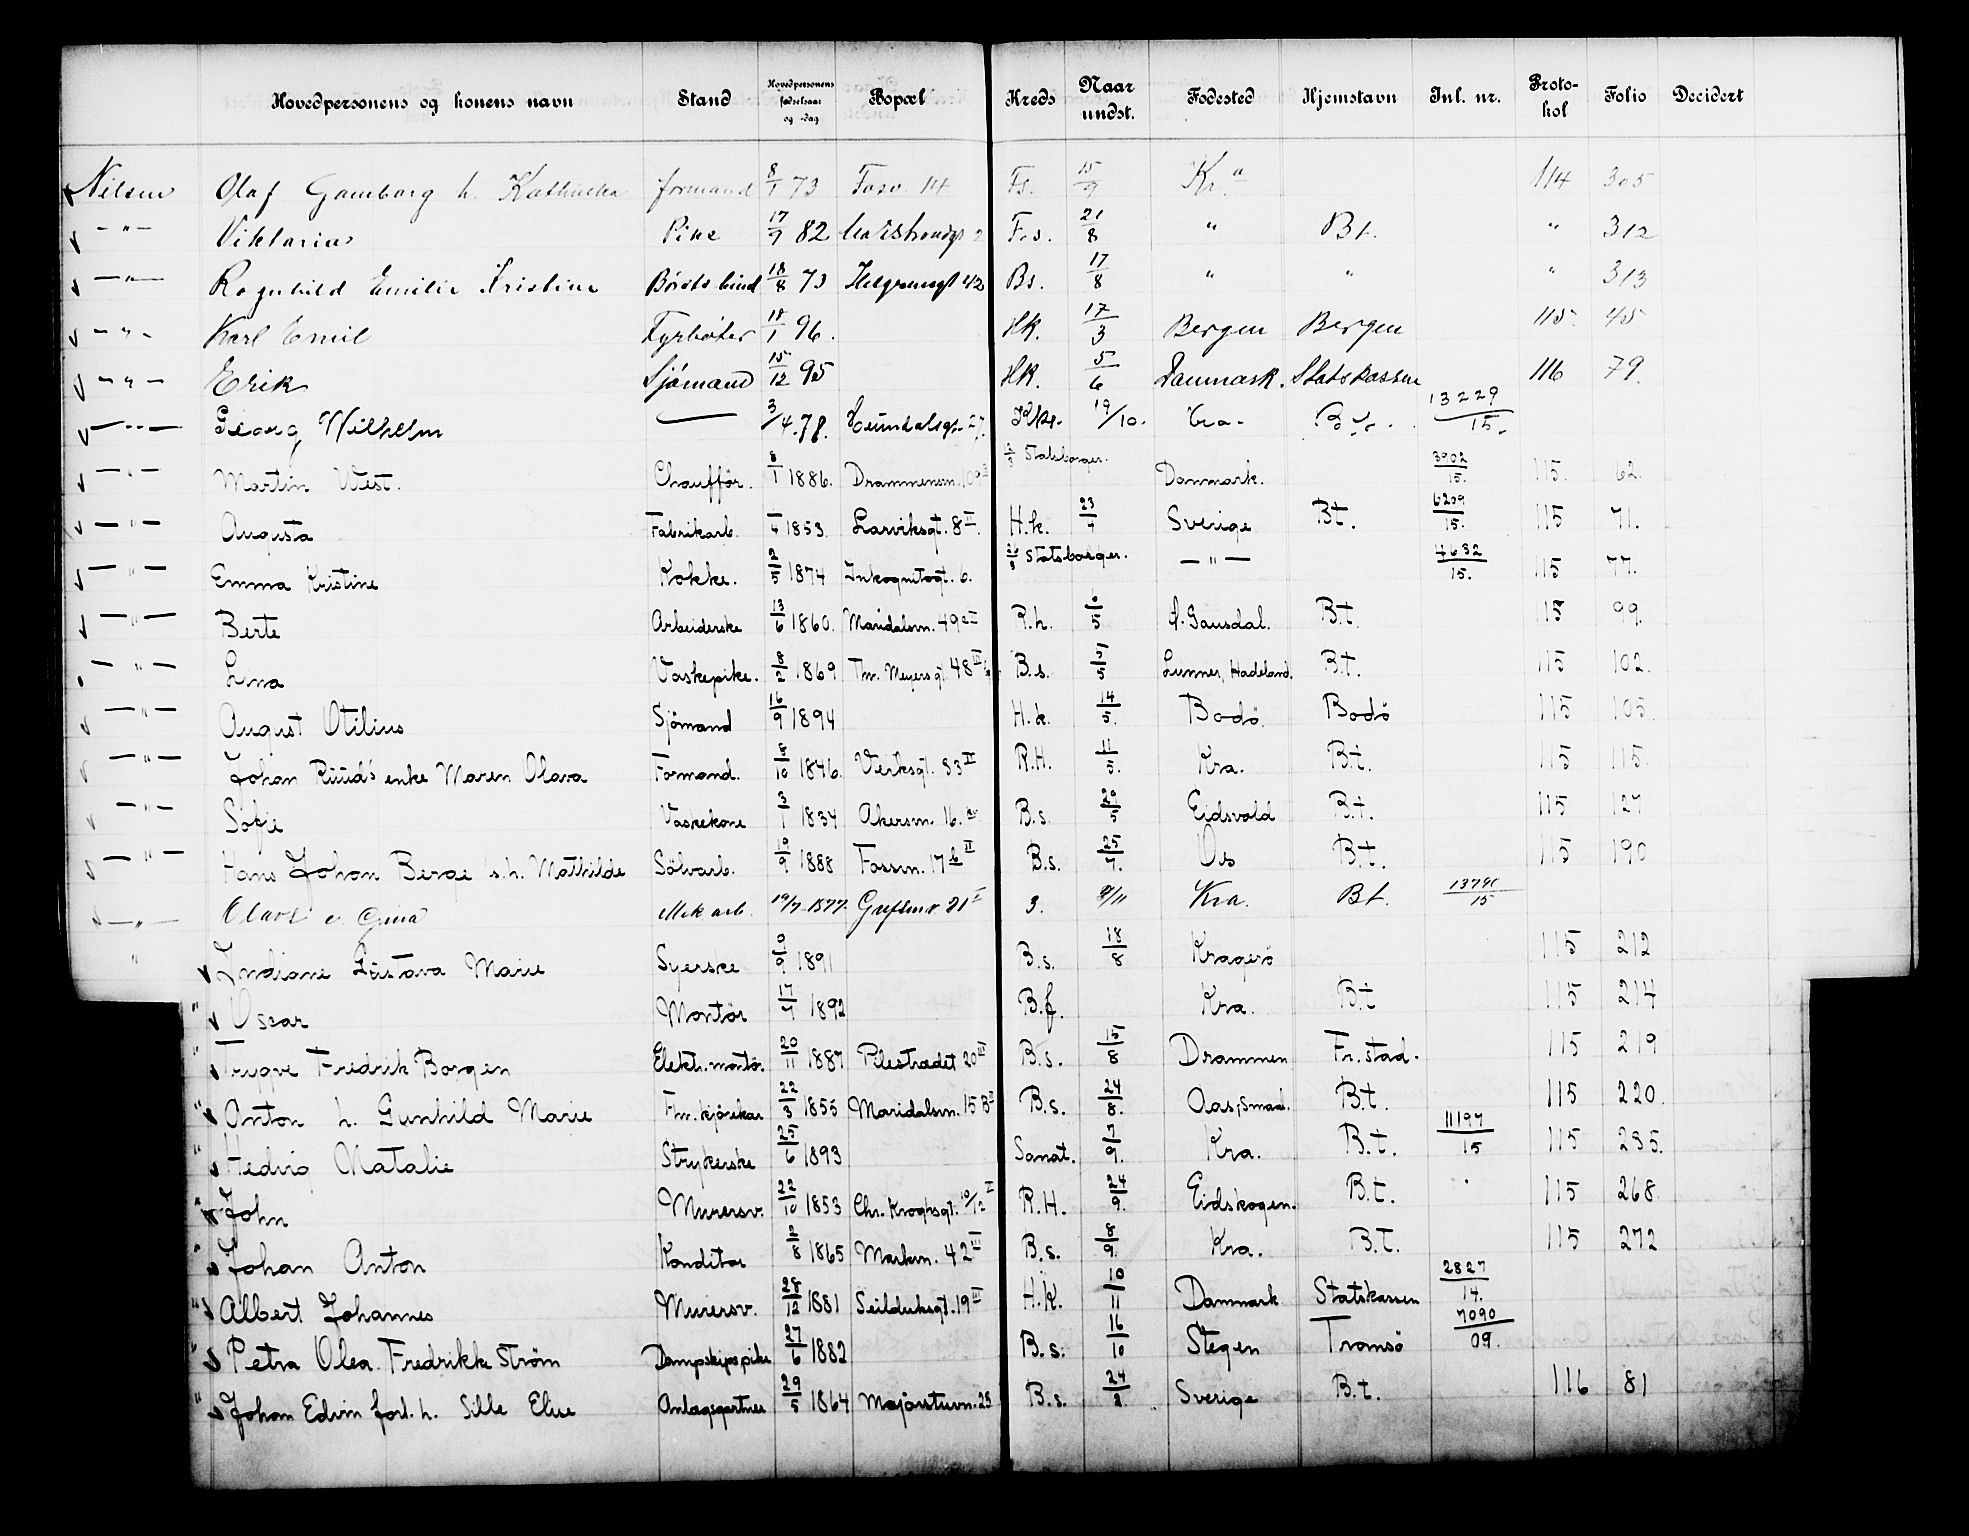 Hovedpersonens og konens navn Stand Hovedpersonens fødselsaar og -dag Bopæl Kreds Naar undst. Fødested Hjemstavn Inl. nr. Protokol Folio Decidert
Nilsen Olaf Gamborg h. Kathinka formand 8/1 73 Fosv. 14 Fs. 15/9 Kr.a 114 305
— " — Viktoria Pike 17/9 82 F.s. 21/8 " Bt. " 312
— " — Ragnhild Emilie Kristine 18/8 73 42 Bs. 17/8 " " " 313
— " — Karl Emil Fyrbøter 18/1 96. Hk. 17/3 Bergen Bergen 115. 45
— " — Erik Sjømand 15/12 95 Hk. 5/6 Danmark. Statskassen 116 79.
— " — Georg Wilhelm — 3/4.78. 27. 19/10. Kra. B.t. 13229/15.
— " — Martin West. Chauffør. 8/1 1886. Drammensv. Statsborger. Danmark. 3902/15. 115. 62.
— " — Augusta Fabrikarb. 1853. Larviksgt. 8 II H.k. 23/4 Sverige Bt. 6209/15. 115 71.
— " — Emma Kristine Kokke. 2/5 1874 Inkognitogt. 6. Statsborger. — " — 4632/15. 115 77.
— " — Berte Arbeiderske 13/6 1860. Maridalsv. 49 R.h. 6/5 Gausdal. B.t. 115 99.
— " — Lina Vaskepike. 8/2 1869 Thv. Meyersgt. 48 III B.s. 5/5 Lunner, Hadeland. B.t. 115 102.
— " — August Otilius Sjömand 16/9 1894 H.k. 14/5. Bodö. Bodö 115 105.
— " — Johan Ruud's enke Maren Olava Formand. 8/10 1846. Verksgt. 33 II R.H. 11/5. Kra. B.t. 115 115.
— " — Sofie Vaskekone 3/1 1834 Akersv. 16. B.s. 29/5 Eidsvold B.t. 115 127
— " — Hans Johan Berge s.h. Mathilde Sölvarb. 19/9 1888 Fossv. 17 b II B.s. 25/7. Os B.t. 115 190
— " — Olaves e. Gina Mek arb. 19/7 1877. Grefsenv 21 I 3. 9/11 Kra. Bt. 13791/15
" Indiane Gustava Marie Syerske 9/9 1891 B.s. 18/8 Kragerö 115 212
" Oscar Montör 17/7 1892 B.f. Kra. B.t 115 214
" Trygve Fredrik Borgen Elektr. montör. 20/11 1887 Pilestrædet 20 III B.s. 15/8 Drammen Fr.stad. 115 219
" Anton h. Gunhild Marie Fhv. kjörekar 22/3 1855 Maridalsv. 15 B II B.s. 24/8. Aas, Smaal. B.t. 115 220.
" Hedvig Natalie Strykerske 25/6 1893 Sanat. 7/9. Kra. B.t. 11197/15 115 235.
" John Murersv. 22/10 1853 Chr. Kroghsgt. 10/12 II R.H. 24/9. Eidskogen. B.t. 115 268
" Johan Anton Konditor 2/8 1865 Markv. 42 III B.s. 8/9. Kra. B.t. 115 272
" Albert Johannes Murersv. 28/12 1881 Seilduksgt. 19 III H.K. 10/11 Danmark Statskassen 2827/14.
" Petra Olea. Fredrikke Ström Dampskipspike 27/6 1882 B.s. 16/10 Stegen Tromsö 7090/09.
" Johan Edvin forl. h. Sille Elise Anlagsgartner 29/5 1864 Majorstuvn. 28 B.s. 24/2. Sverige B.t. 116 81